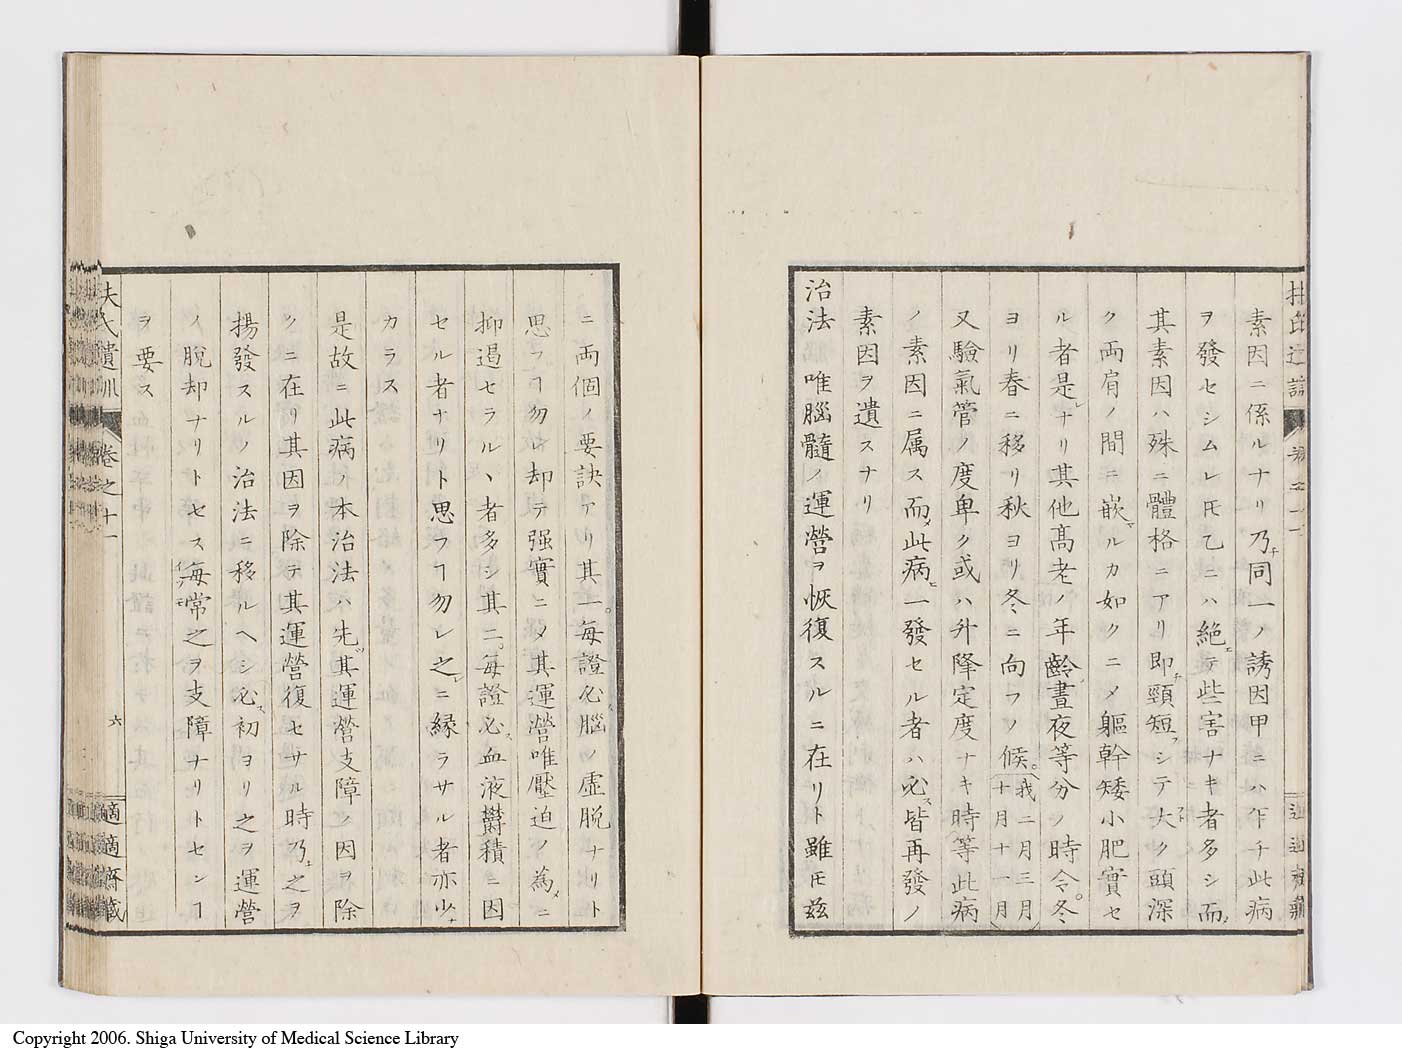 素因ニ係ルナリ乃チ同一ノ誘因甲ニハ乍チ此病
ヲ發セシムレ𪜈乙ニハ絶エテ些害ナキ者多シ而シテ
其素因ハ殊ニ體格ニアリ即チ頸短フシテ大ク頭深
ク両肩ノ間ニ嵌マルカ如クニメ軀幹矮小肥實セ
ル者是レナリ其他髙老ノ年齡晝夜等分ノ時令。冬
ヨリ春ニ移リ秋ヨリ冬ニ向フノ候。
(我二月三月
十月十一月)
又驗氣管ノ度卑ク或ハ升降定度ナキ時等此病
ノ素因ニ属ス而メ此病ヒ一發セル者ハ必ス皆再發ノ
素因ヲ遺スナリ
治法唯腦髓ノ運營ヲ恢復スルニ在リト雖𪜈茲
ニ両個ノ要訣アリ其一。毎證必ス腦ノ虚脱ナリト
思フヿ勿レ却テ强實ニメ其運營唯壓迫ノ為メニ
抑遏セラルヽ者多シ其二。毎證必ス血液欝積ニ因
セル者ナリト思フヿ勿レ之レニ縁ラサル者亦少ナ
カラス
是故ニ此病ノ本治法ハ先ツ其運營支障ノ因ヲ除
クニ在リ其因ヲ除テ其運營復セサル時乃チ之ヲ
揚發スルノ治法ニ移ルヘシ必ス初ヨリ之ヲ運營
ノ脱却ナリトセス毎常之ヲ支障ナリトセンヿ
ヲ要ス
扶氏遺訓 卷之十一 六 適適齋藏